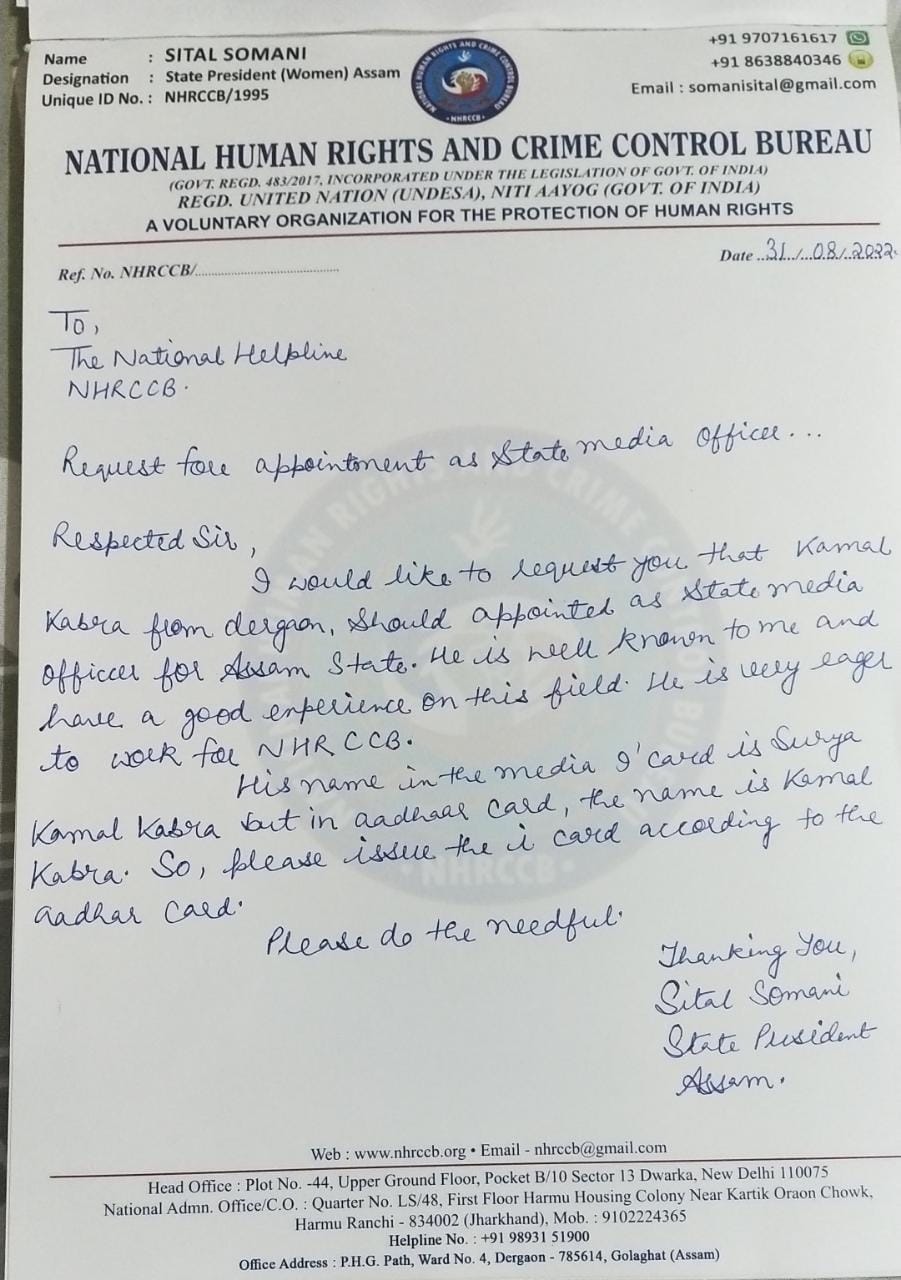 Name : SITAL SOMANI
Designation : State President (Women) Assam
Unique ID No. : NHRCCB/1995
NATIONAL HUMAN RIGHTS AND CRIME CONTROL BUREAU
• NHRCCB •
+91 9707161617
+91 8638840346
Email : somanisital@gmail.com
NATIONAL HUMAN RIGHTS AND CRIME CONTROL BUREAU
(GOVT. REGD. 483/2017, INCORPORATED UNDER THE LEGISLATION OF GOVT. OF INDIA)
REGD. UNITED NATION (UNDESA), NITI AAYOG (GOVT. OF INDIA)
A VOLUNTARY ORGANIZATION FOR THE PROTECTION OF HUMAN RIGHTS
Ref. No. NHRCCB/............................................
Date ..31../...08./..2022.
To,
The National Helpline
NHRCCB.
Request fore appointment as State media officer...
Respected Sir,
I would like to request you that Kamal
Kabra from dergaon, should appointed as State media
officer for Assam State. He is well known to me and
have a good enperience on this field. He is very eager
to work for NHRCCB.
His name in the media I'card is Surya
Kamal Kabra but in aadhaar card, the name is Kamal
Kabra. So, please issue the i card according to the
aadhar card.
Please do the needful.
Thanking You,
Sital Somani
State President
Assam.
• NHRCCB •
Web : www.nhrccb.org • Email - nhrccb@gmail.com
Head Office : Plot No. -44, Upper Ground Floor, Pocket B/10 Sector 13 Dwarka, New Delhi 110075
National Admn. Office/C.O. : Quarter No. LS/48, First Floor Harmu Housing Colony Near Kartik Oraon Chowk,
Harmu Ranchi - 834002 (Jharkhand), Mob. : 9102224365
Helpline No. : +91 98931 51900
Office Address : P.H.G. Path, Ward No. 4, Dergaon - 785614, Golaghat (Assam)